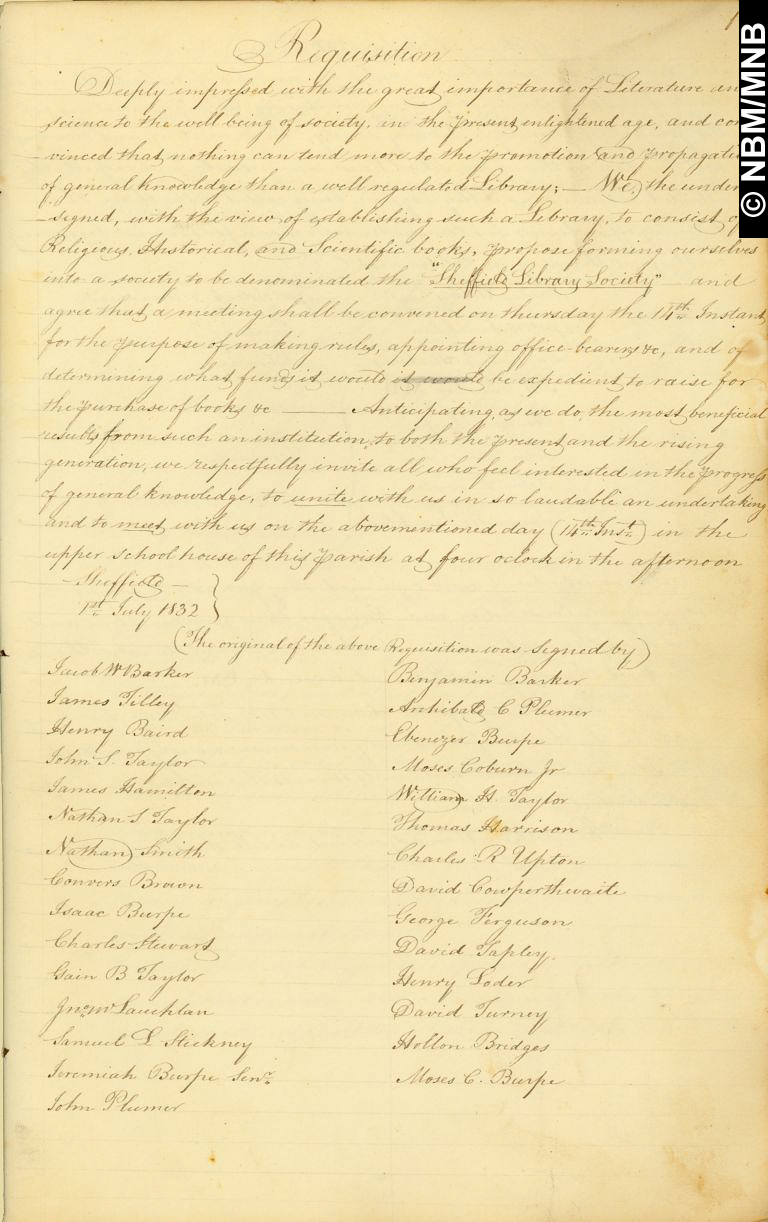 1
© NBM/MNB
Requisition
Deeply impressed with the great importance of Literature an
science to the well being of society, in the present enlightened age, and con
vinced that nothing can tend more to the promotion and propagati
of general knowledge than a well regulated Library; — We, the under
-signed, with the view of establishing such a Library, to consist of
Religious, Historical, and Scientific books, propose forming ourselves
into a society to be denominated the "Sheffield Library Society" and
agree that a meeting shall be convened on thursday the 14th Instant
for the purpose of making rules, appointing office-bearers &c, and of
determining what funds it would it would be expedient to raise for
the purchase of books &c — Anticipating, as we do, the most beneficial
results from such an institution, to both the present and the rising
generation, we respectfully invite all who feel interested in the progress
of general knowledge, to unite with us in so laudable an undertaking
and to meet with us on the abovementioned day (14th Inst) in the
upper school house of this Parish at four oclock in the afternoon
- Sheffield -
1st July 1832 }
(The original of the above Requisition was signed by)
Jacob W Barker
James Tilley
Henry Baird
John S. Taylor
James Hamilton
Nathan S Taylor
Nathan Smith
Convers Brown
Isaac Burpe
Charles Stewart
Gain B Taylor
Jno McLauchlan
Samuel L Stickney
Jeremiah Burpe Senr
John Plumer
Benjamin Barker
Archibald C Plumer
Ebenezer Burpe
Moses Coburn Jr
William H. Taylor
Thomas Harrison
Charles R Upton
David Cowperthwaite
George Ferguson
David Tapley
Henry Loder
David Turney
Hollon Bridges
Moses C. Burpe